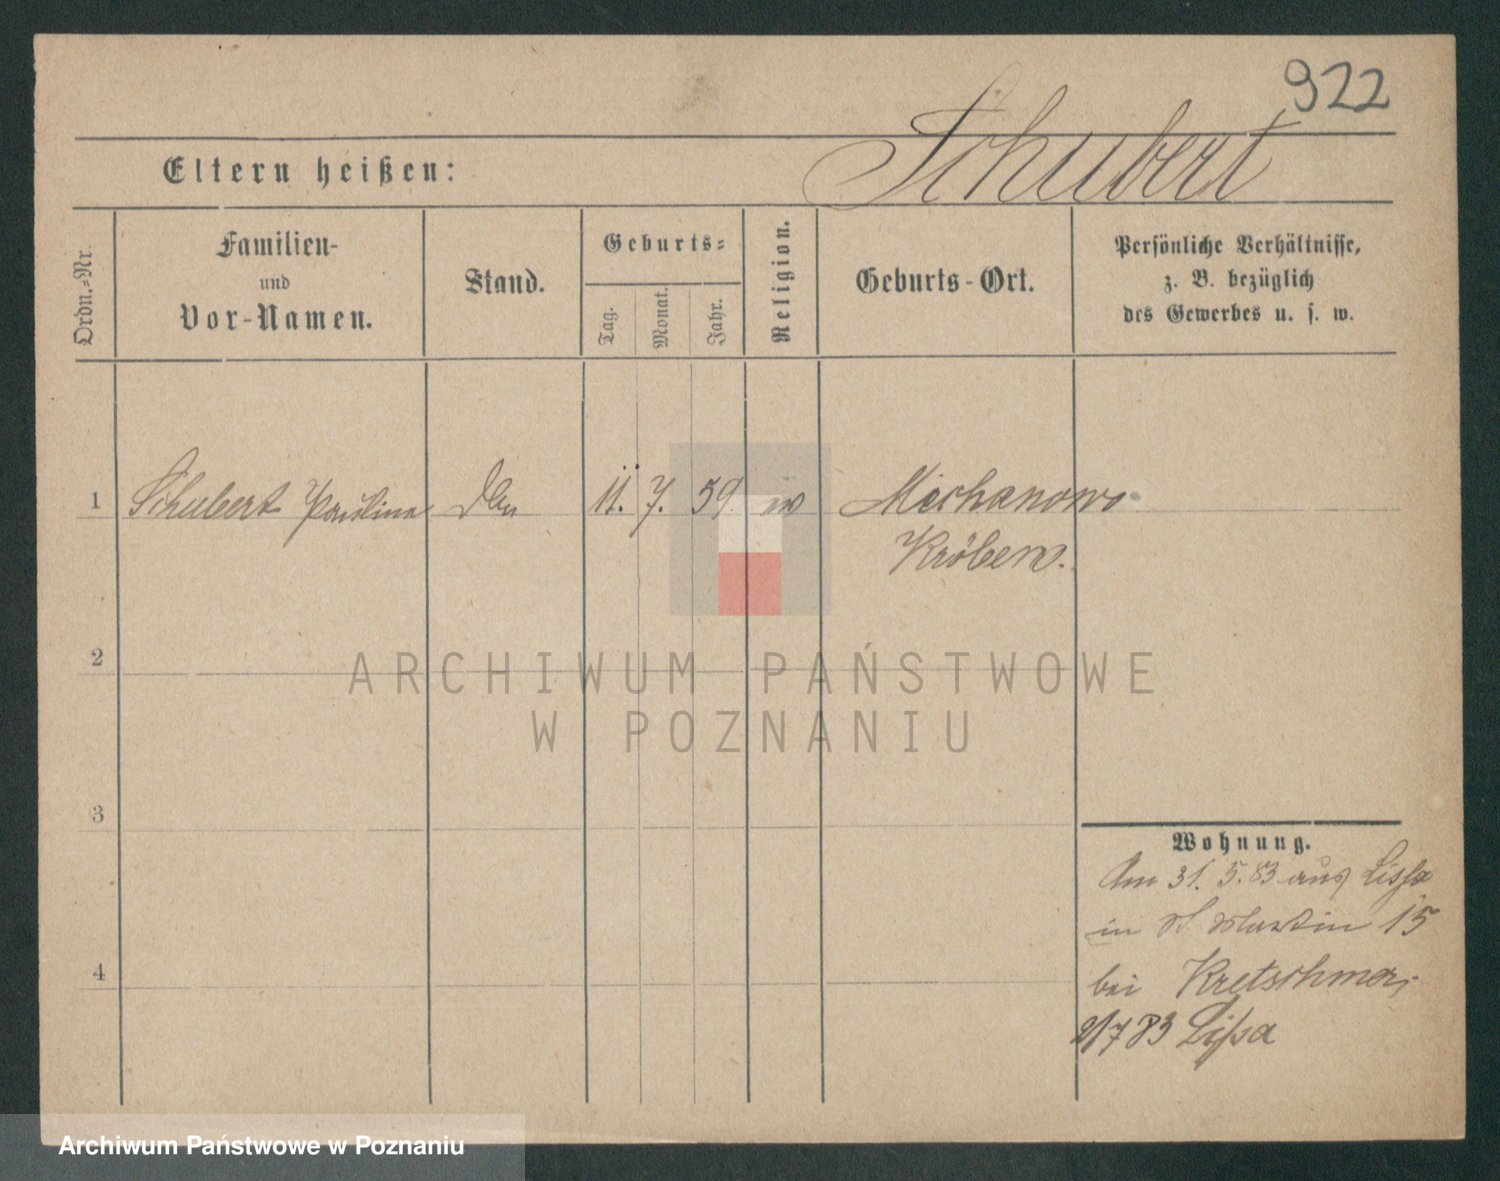 922
Schubert
Eltern heißen:
Ordn.-Nr.
Familien-
und
Vor-Namen.
Stand.
Geburts-
Tag.
Monat.
Jahr.
Religion.
Geburts-Ort.
Persönliche Verhältnisse,
z. B. bezüglich
des Gewerbes u. s. w.
1 Schubert Paulina 11. 7. 59
Kröben.
2
ARCHIWUM PAŃSTWOWE
W POZNANIU
3
Wohnung.
Am 31. 5. 83 aus Lissa
in St Martin 15
bei Kretschmer
4
2/7 83 Lissa
Archiwum Państwowe w Poznaniu